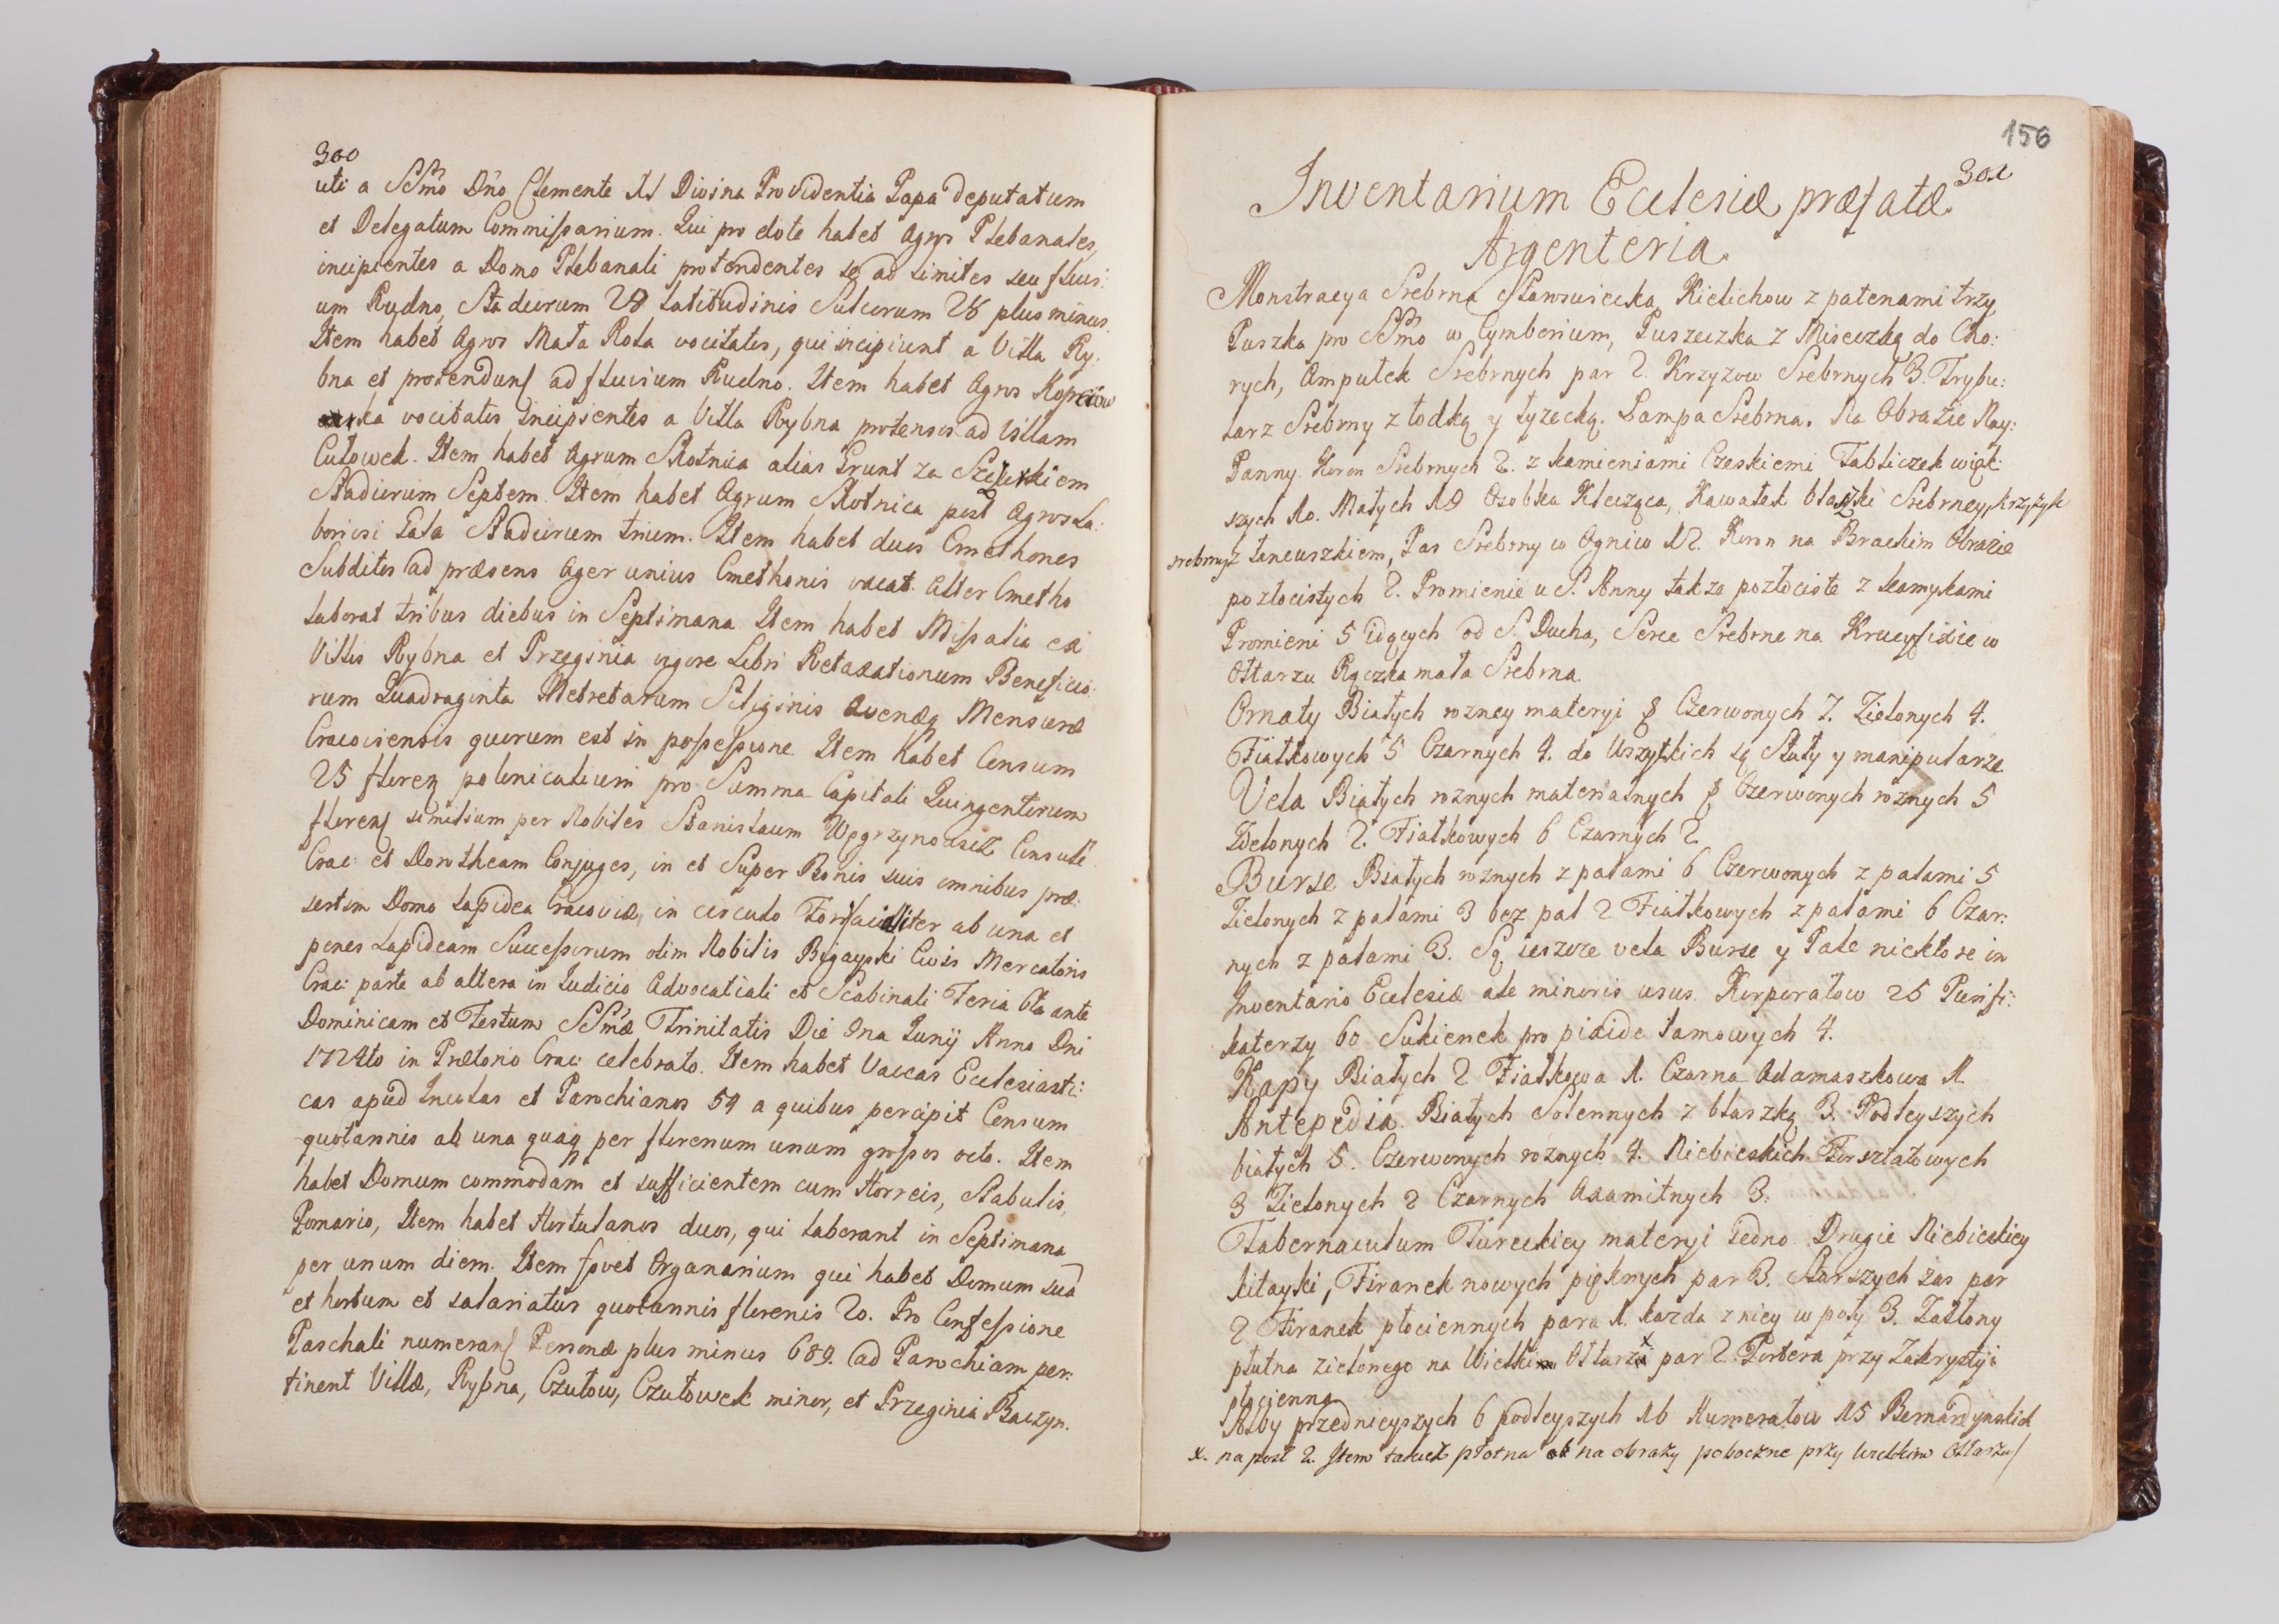 300
uti a SSmo Dno Clemente XI Divina Providentia Papa deputatum
et Delegatum Commissarium. Qui pro dote habet Agros Plebanales,
incipientes a Domo Plebanali protendentes se ad Limites seu fluvi:
um Rudno, Stadiorum 28 Latitudinis Sulcorum 28 plus minus.
Item habet Agros Mała Rola vocitatos, qui incipiunt a Villa Ry:
bna et protendunt ad fluvium Rudno. Item habet Agros
vocitatos incipientes a Villa Rybna protensos ad Villam
Cułowek. Item habet Agrum Skotnica alias Grunt za
Stadiorum Septem. Item habet Agrum Skotnica post Agros La:
boriosi Gała Stadiorum trium. Item habet duos Cmethones
Subditos ad præsens Ager unius Cmethonis vacat. Alter Cmetho
laborat tribus diebus in Septimana Item habet Missalia ex
Villis Rybna et Przeginia vigore Libri Retaxationum Beneficio:
rum Quadraginta Metretarum Siliginis Avenæq Mensuræ
Cracoviensis quorum est in possessione Item habet Censum
25 floren polonicalium pro Summa Capitali Quingentorum
floren similium per Nobiles Stanislaum Węgrzynowicz Consulē
Crac: et Dorotheam Conjuges, in et Super Bonis suis omnibus præ:
sertim Domo Lapidea Cracoviæ, in circulo ab una et
penes Lapideam Successorum olim Nobilis Bigayski Civis Mercatoris
Crac: parte ab altera in Iudicio Advocatiali et Scabinali Feria 6ta ante
Dominicam et Festum SSmæ Trinitatis Die 9na Junij Anno Dni
1724to in Prætorio Crac: celebrato. Item habet Vaccas Ecclesiasti:
cas apud Incolas et Parochianos 54 a quibus percipit Censum
quotannis ab una quaq per florenum unum grossos octo. Item
habet Domum commodam et sufficientem cum Horreis, Stabulis,
Pomario, Item habet Hortulanos duos, qui laborant in Septimana
per unum diem. Item fovet Organarium qui habet Domum suā
et hortum et salariatur quotannis florenis 20. Pro Confessione
Paschali numerant Personæ plus minus 689. ad Parochiam per:
tinent Villæ, Rybna, Czułow, Czułowek minor, et Przeginia Baczyn.
156
301
Inventarium Ecclesiæ præfatæ
Argenteria.
Monstracya Srebrna Staroswiecka, Kielichow z patenami trzy,
Puszka pro SSmo w Cymborium, Puszeczka z Miseczką do Cho:
rych, Ampułek Srebrnych par 2. Krzyzow Srebrnych 3. Trybu:
larz Srebrny z łodką y łyzecką. Lampa Srebrna. Na Obrazie Nay:
Panny Koron Srebrnych 2. z kamieniami Czeskiemi Tabliczek więk:
szych 10. Małych 19 Osobka Klęcząca, Kawałek blaszki Srebrney, krzyzyk
srebrny z łancuszkiem, Pas Srebrny w Ogniw 12. Koron na Brackim Obrazie
pozłocistych 2. Promienie u S. Anny takze pozłociste z kamykami
Promieni 5 idących od S. Ducha, Serce Srebrne na Krucyfixie w
Ołtarzu Rączka mała Srebrna.
Ornaty Białych rozney materyi 8 Czerwonych 7. Zielonych 4.
Fiałkowych 5 Czarnych 4. do Wszytkich są Stuły y manipularze.
Vela Białych roznych materialnych 8 Czerwonych roznych 5
Zielonych 2. Fiałkowych 6 Czarnych 2
Burse Białych roznych z pałami 6 Czerwonych z pałami 5
Zielonych z pałami 3 bez pal 2 Fiałkowych z pałami 6 Czar:
nych z pałami 3. Są ieszcze vela Burse y Pale niektore in
Inventario Ecclesiæ ale minoris usus. Korporałow 25 Purifi:
katerzy 60 Sukienek pro pixide lamowych 4.
Kapy Białych 2 Fiałkowa 1. Czarna Adamaszkowa 1.
Antepedia. Białych Solennych z blaszką 3. Podleyszych
białych 5. Czerwonych roznych 4. Niebieskich Forsztatowych
3 Zielonych 2 Czarnych Axamitnych 3.
Tabernaculum Tureckiey materyi iedno. Drugie Niebieskiey
kitayki, Firanek nowych pięknych par 3. Starszych zas par
2 Firanek płociennych para 1. kazda z niey w poły 3. Zasłony
płutna zielonego na Wielkim Ołtarzu x par 2. Portera przy Zakrystyi
płocienna
Alby przednieyszych 6 podleyszych 16 Humerałow 15 Bernardynskich
x. na post 2. Item takiesz płotna na obrazy poboczne przy wielkim Ołtarzu